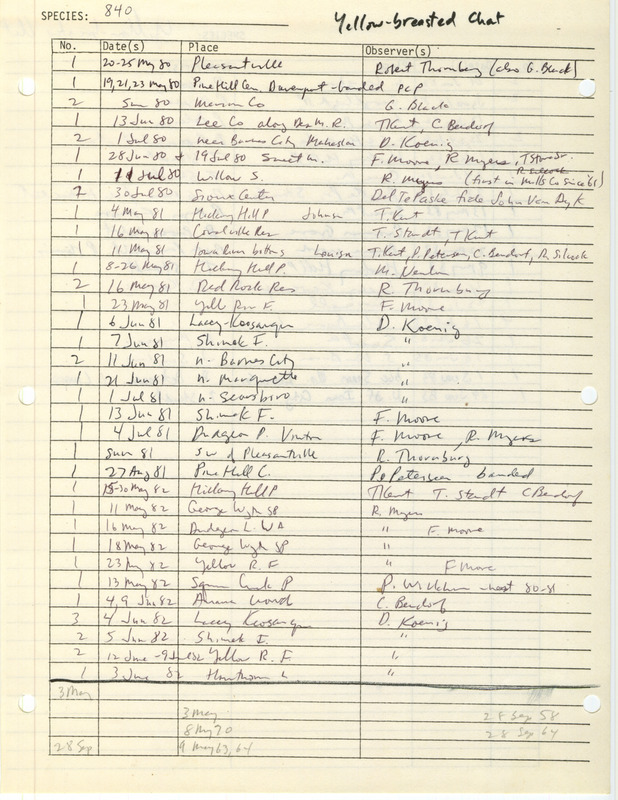 SPECIES: 840 Yellow-breasted Chat
No. Date(s) Place Observer(s)
1 20-25 May 80 Pleasantville Robert Thornburg (also G. Black)
1 19,21,23 May 80 Pine Hill Cem. Davenport-banded PCP
2 Sum 80 Marion Co G. Black
1 13 Jun 80 Lee Co along Des M. R. TKent, C. Bendorf
2 1 Jul 80 near Barnes City Mahaska D. Koenig
1 28 Jun 80 + 19 Jul 80 F. Moore, R. Myers,
1 11 Jul 80 Willow S. R. Myers (first in Mills Co since 61)
2 30 Jul 80 Sioux Center Del TePaske fide John Van Dyk
1 4 May 81 Hickory Hill P Johnson T. Kent
1 16 May 81 Coralville Res T. Staudt, T Kent
1 11 May 81 Iowa River bottoms Louisa T. Kent, P. Petersen, C. Bendorf, R. Silcock
1 8-26 May 81 Hickory Hill P. M. Newlon
2 16 May 81 Red Rock Res R. Thornburg
1 23 May 81 Yell Riv F. F. Moore
1 6 Jun 81 Lacey-Keosauqua D. Koenig
1 7 Jun 81 Shimek F. "
2 11 Jun 81 n. Barnes City "
1 21 Jun 81 n. Marquette "
1 1 Jul 81 n. Searsboro "
1 13 Jun 81 Shimek F. F. Moore
1 4 Jul 81 Dudgeon P. Vinton F. Moore, R. Myers
1 Sum 81 SW of Pleasantville R. Thornburg
1 27 Aug 81 Pine Hill C. P Petersen banded
1 15-30 May 82 Hickory Hill P TKent T. Staudt C Bendorf
1 11 May 82 George Wyth SP R. Myers
1 16 May 82 Dudgeon L. WA " F. Moore
1 18 May 82 George Wyth SP "
1 23 May 82 Yellow R. F " F Moore
1 13 May 82 Squaw Creek P P. Wickham 80-81
1 4,9 Jun 82 Amana Woods C. Bendorf
3 4 Jun 82 Lacey Keosauqua D. Koenig
2 5 Jun 82 Shimek F. "
2 12 June - 9 Jul 82 Yellow R. F. "
1 3 June 82 Hawthorn L "
3 May
3 May 28 Sep 58
8 May 70 28 Sep 64
28 Sep 9 May 63, 64